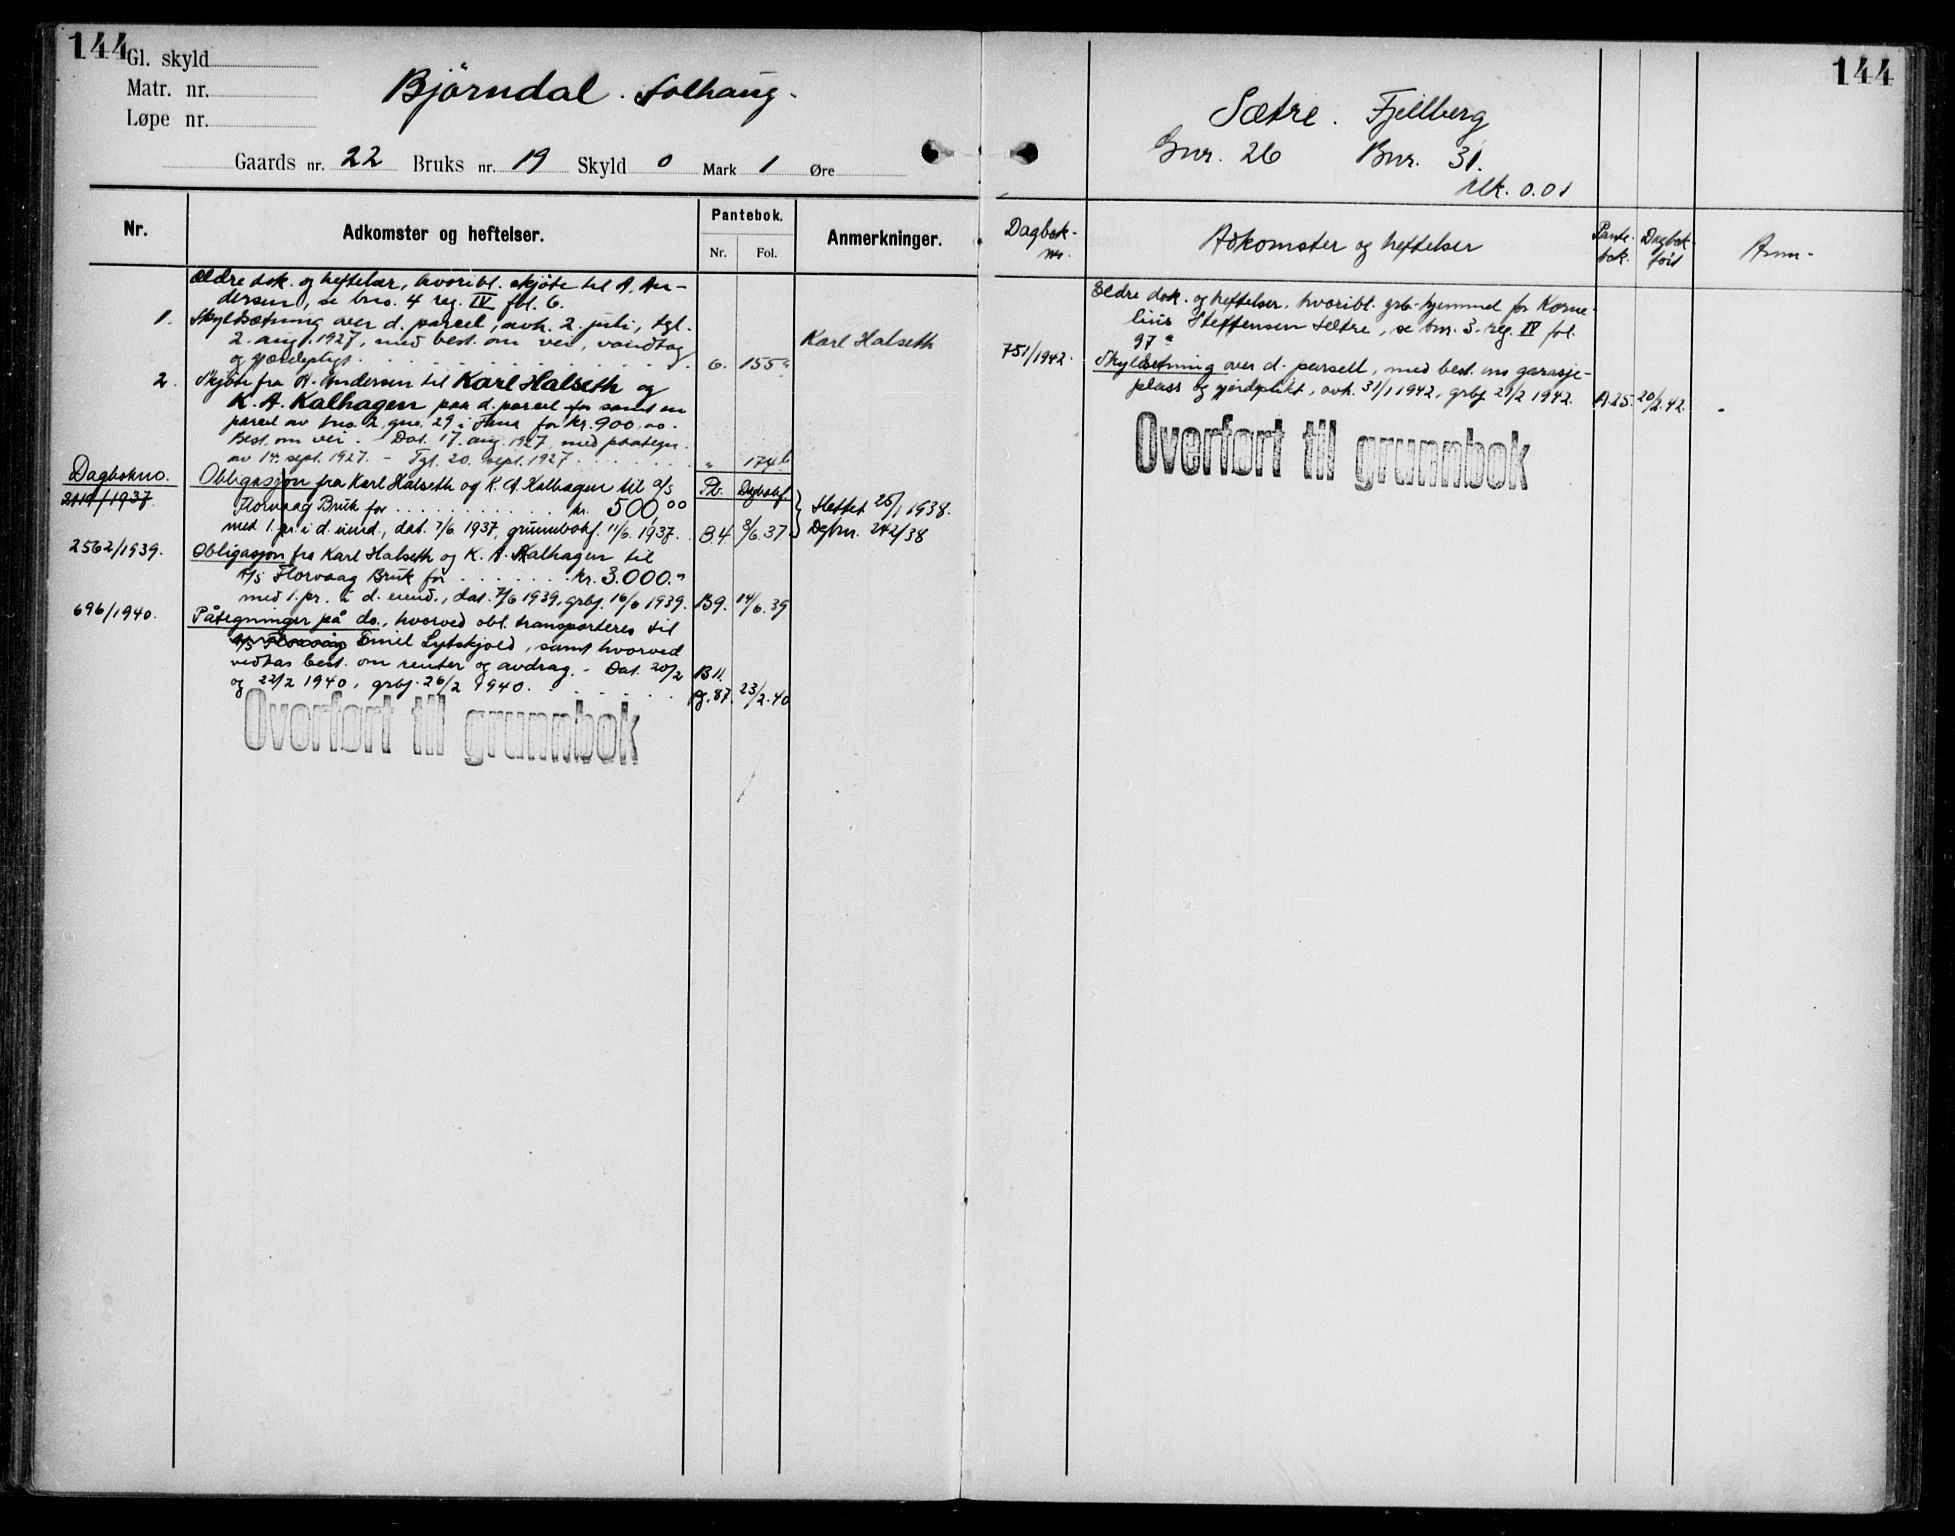 144
Gl. skyld
Matr. nr.
Løpe nr.
Björndal. Solhaug.
Gaards nr. 22 Bruks nr. 19 Skyld 0 Mark 1 Øre
Nr.
Adkomster og heftelser.
Pantebok.
Nr. Fol.
Anmerkninger.
Ældre dok. og heftelser, hvoribl. skjøte til A. An-
dersen, se bno. 4 reg. IV fol. 6.
1. Skyldsætning over d. parcel, avh. 2. juli, tgl.
2. aug. 1927, med best. om vei, vandtag
og gjærdepligt. 6. 155a
Karl Halseth
2. Skjøte fra A. Andersen til Karl Halseth og
K. A. Kalhagen paa d. parcel for samt en
parcel av bno. 2, gno. 29 i Fana for kr. 900.00.
Best. om vei. - Dat. 17. aug. 1927, med paategn.
av 14. sept. 1927. - Tgl. 20. sept. 1927 " 174b
Dagbokno.
2119/1937. Obligasjon fra Karl Halseth og K. A. Kalhagen til A/S Pb. Dagbokf.
Florvaag Bruk for kr. 500,00
med 1. pr. i d. eiend., dat. 7/6 1937, grunnbokf. 11/6 1937. B.4. 8/6.37
Slettet 25/1 1938.
Dgbnr. 242/38
2562/1939. Obligasjon fra Karl Halseth og K. A. Kalhagen til
A/S Florvaag Bruk for kr. 3.000.-
med 1. pr. i d. eiend., dat. 7/6 1939, grbf. 16/6 1939. B9. 14/6.39
696/1940. Påtegninger på do., hvorved obl. transporteres til
A/S Florvåg Emil Lytskjold, samt hvorved
vedtas best. om renter og avdrag. - Dat. 20/2 B11.
og 22/2 1940, grbf. 26/2 1940. pg. 87. 23/2.40
Overført til grunnbok
144
Sætre. Fjellberg
Gnr. 26 Bnr. 31.
Mk. 0.01
Dagbok-
nr.
Adkomster og heftelser
Pante-
bok.
Dagbok-
ført
Anm.
Eldre dok. og heftelser, hvoribl. grb-hjemmel for Korne-
lius Steffensen Sætre, se bnr. 3. reg. IV fol.
97a
751/1942. Skyldsetning over d. parsell, med best. om garasje-
plass og gjerdeplikt, avh. 31/1 1942, grbf. 21/2 1942. A.25. 20/2.42.
Overført til grunnbok